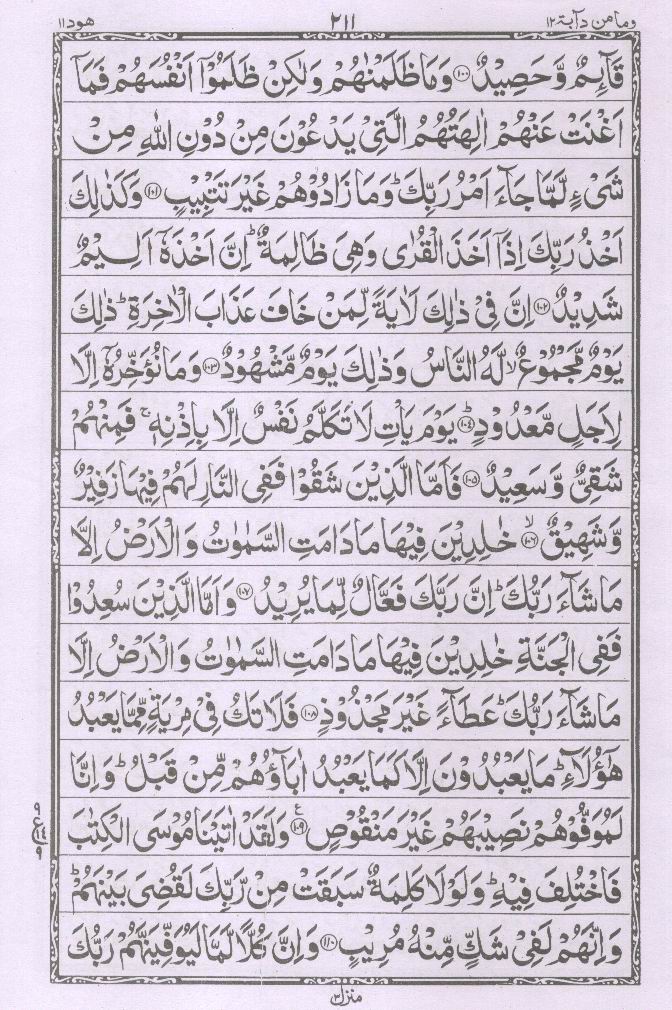 وما من دآبة ١٢ ٢١١ هود ١١
قَآئِمٌ وَّحَصِيْدٌ ﴿١٠٠﴾ وَمَا ظَلَمْنٰهُمْ وَلٰكِنْ ظَلَمُوْٓا اَنْفُسَهُمْ فَمَآ
اَغْنَتْ عَنْهُمْ اٰلِهَتُهُمُ الَّتِيْ يَدْعُوْنَ مِنْ دُوْنِ اللّٰهِ مِنْ
شَيْءٍ لَّمَّا جَآءَ اَمْرُ رَبِّكَ ؕ وَمَا زَادُوْهُمْ غَيْرَ تَتْبِيْبٍ ﴿١٠١﴾ وَكَذٰلِكَ
اَخْذُ رَبِّكَ اِذَآ اَخَذَ الْقُرٰى وَهِيَ ظَالِمَةٌ ؕ اِنَّ اَخْذَهٗٓ اَلِيْمٌ
شَدِيْدٌ ﴿١٠٢﴾ اِنَّ فِيْ ذٰلِكَ لَاٰيَةً لِّمَنْ خَافَ عَذَابَ الْاٰخِرَةِ ؕ ذٰلِكَ
يَوْمٌ مَّجْمُوْعٌ ۙ لَّهُ النَّاسُ وَذٰلِكَ يَوْمٌ مَّشْهُوْدٌ ﴿١٠٣﴾ وَمَا نُؤَخِّرُهٗٓ اِلَّا
لِاَجَلٍ مَّعْدُوْدٍ ؕ ﴿١٠٤﴾ يَوْمَ يَاْتِ لَا تَكَلَّمُ نَفْسٌ اِلَّا بِاِذْنِهٖ ۚ فَمِنْهُمْ
شَقِيٌّ وَّسَعِيْدٌ ﴿١٠٥﴾ فَاَمَّا الَّذِيْنَ شَقُوْا فَفِي النَّارِ لَهُمْ فِيْهَا زَفِيْرٌ
وَّشَهِيْقٌ ۙ ﴿١٠٦﴾ خٰلِدِيْنَ فِيْهَا مَا دَامَتِ السَّمٰوٰتُ وَالْاَرْضُ اِلَّا
مَا شَآءَ رَبُّكَ ؕ اِنَّ رَبَّكَ فَعَّالٌ لِّمَا يُرِيْدُ ﴿١٠٧﴾ وَاَمَّا الَّذِيْنَ سُعِدُوْا
فَفِي الْجَنَّةِ خٰلِدِيْنَ فِيْهَا مَا دَامَتِ السَّمٰوٰتُ وَالْاَرْضُ اِلَّا
مَا شَآءَ رَبُّكَ ؕ عَطَآءً غَيْرَ مَجْذُوْذٍ ﴿١٠٨﴾ فَلَا تَكُ فِيْ مِرْيَةٍ مِّمَّا يَعْبُدُ
هٰٓؤُلَآءِ ؕ مَا يَعْبُدُوْنَ اِلَّا كَمَا يَعْبُدُ اٰبَآؤُهُمْ مِّنْ قَبْلُ ؕ وَاِنَّا
لَمُوَفُّوْهُمْ نَصِيْبَهُمْ غَيْرَ مَنْقُوْصٍ ﴿١٠٩﴾ ع وَلَقَدْ اٰتَيْنَا مُوْسَى الْكِتٰبَ
فَاخْتُلِفَ فِيْهِ ؕ وَلَوْلَا كَلِمَةٌ سَبَقَتْ مِنْ رَّبِّكَ لَقُضِيَ بَيْنَهُمْ ؕ
وَاِنَّهُمْ لَفِيْ شَكٍّ مِّنْهُ مُرِيْبٍ ﴿١١٠﴾ وَاِنَّ كُلًّا لَّمَّا لَيُوَفِّيَنَّهُمْ رَبُّكَ
منزل ٣